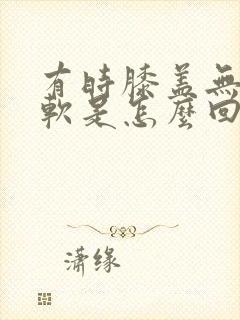 有時膝蓋無
軟是怎麼回
瀟缘